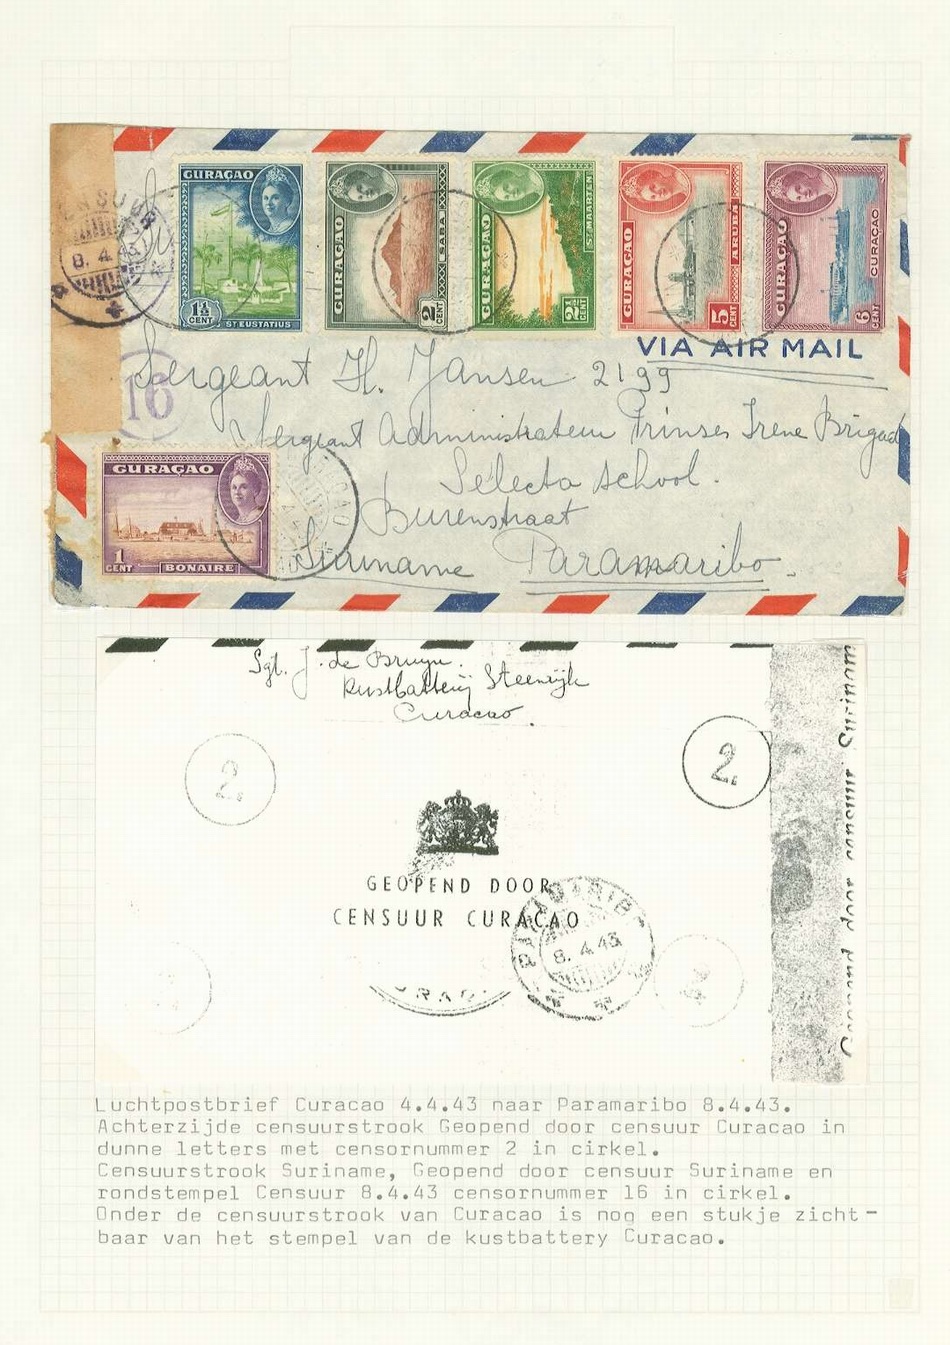 CENSUUR
8.4.43
CURAÇAO
1½ CENT
ST EUSTATIUS
CURAÇAO
SABA
2 CENT
CURAÇAO
ST MAARTEN
2½ CENT
CURAÇAO
ARUBA
5 CENT
CURAÇAO
CURAÇAO
6 CENT
VIA AIR MAIL
16
Sergeant H. Jansen 2199
Sergeant Administrateur Prinses Irene Brigade
Selecta school.
Burenstraat
Suriname Paramaribo.
CURAÇAO
1 CENT
BONAIRE
Sgt. J. de Bruyn.
Kustbatterij Steenrijk
Curacao.
2.
2.
GEOPEND DOOR
CENSUUR CURAÇAO
PARAMARIBO
8.4.43
Geopend door censuur Suriname
Luchtpostbrief Curacao 4.4.43 naar Paramaribo 8.4.43.
Achterzijde censuurstrook Geopend door censuur Curacao in
dunne letters met censornummer 2 in cirkel.
Censuurstrook Suriname, Geopend door censuur Suriname en
rondstempel Censuur 8.4.43 censornummer 16 in cirkel.
Onder de censuurstrook van Curacao is nog een stukje zicht-
baar van het stempel van de kustbattery Curacao.